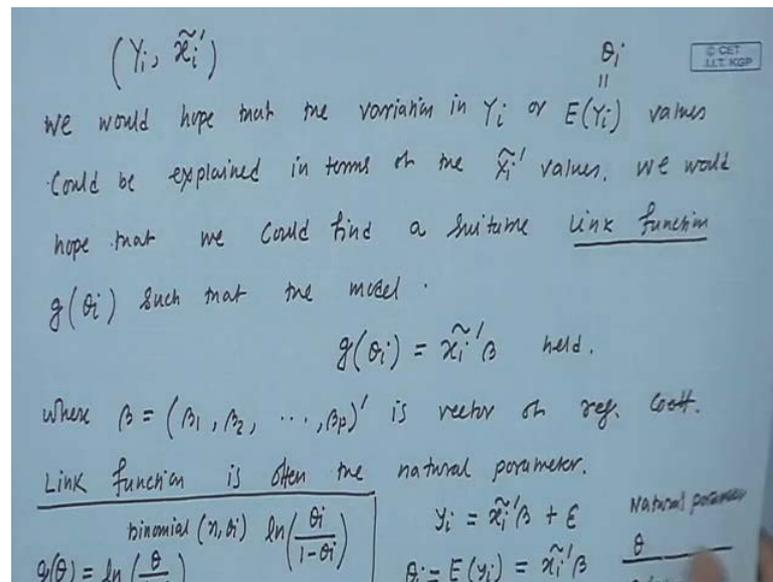 (Yi, x̃i′)
θi
||
© CET
I.I.T. KGP
We would hope that the variation in Yi or E(Yi) values
Could be explained in terms of the x̃i′ values. We would
hope that we could find a suitable Link function
g(θi) such that the model.
g(θi) = x̃i′β held.
where β = (β1, β2, ..., βp)′ is vector of reg. coeff.
Link function is often the natural parameter.
binomial (n, θi) ln(θi/1-θi)
g(θ) = ln(θ
yi = x̃i′β + ε
θi = E(yi) = x̃i′β
Natural parameter
θ